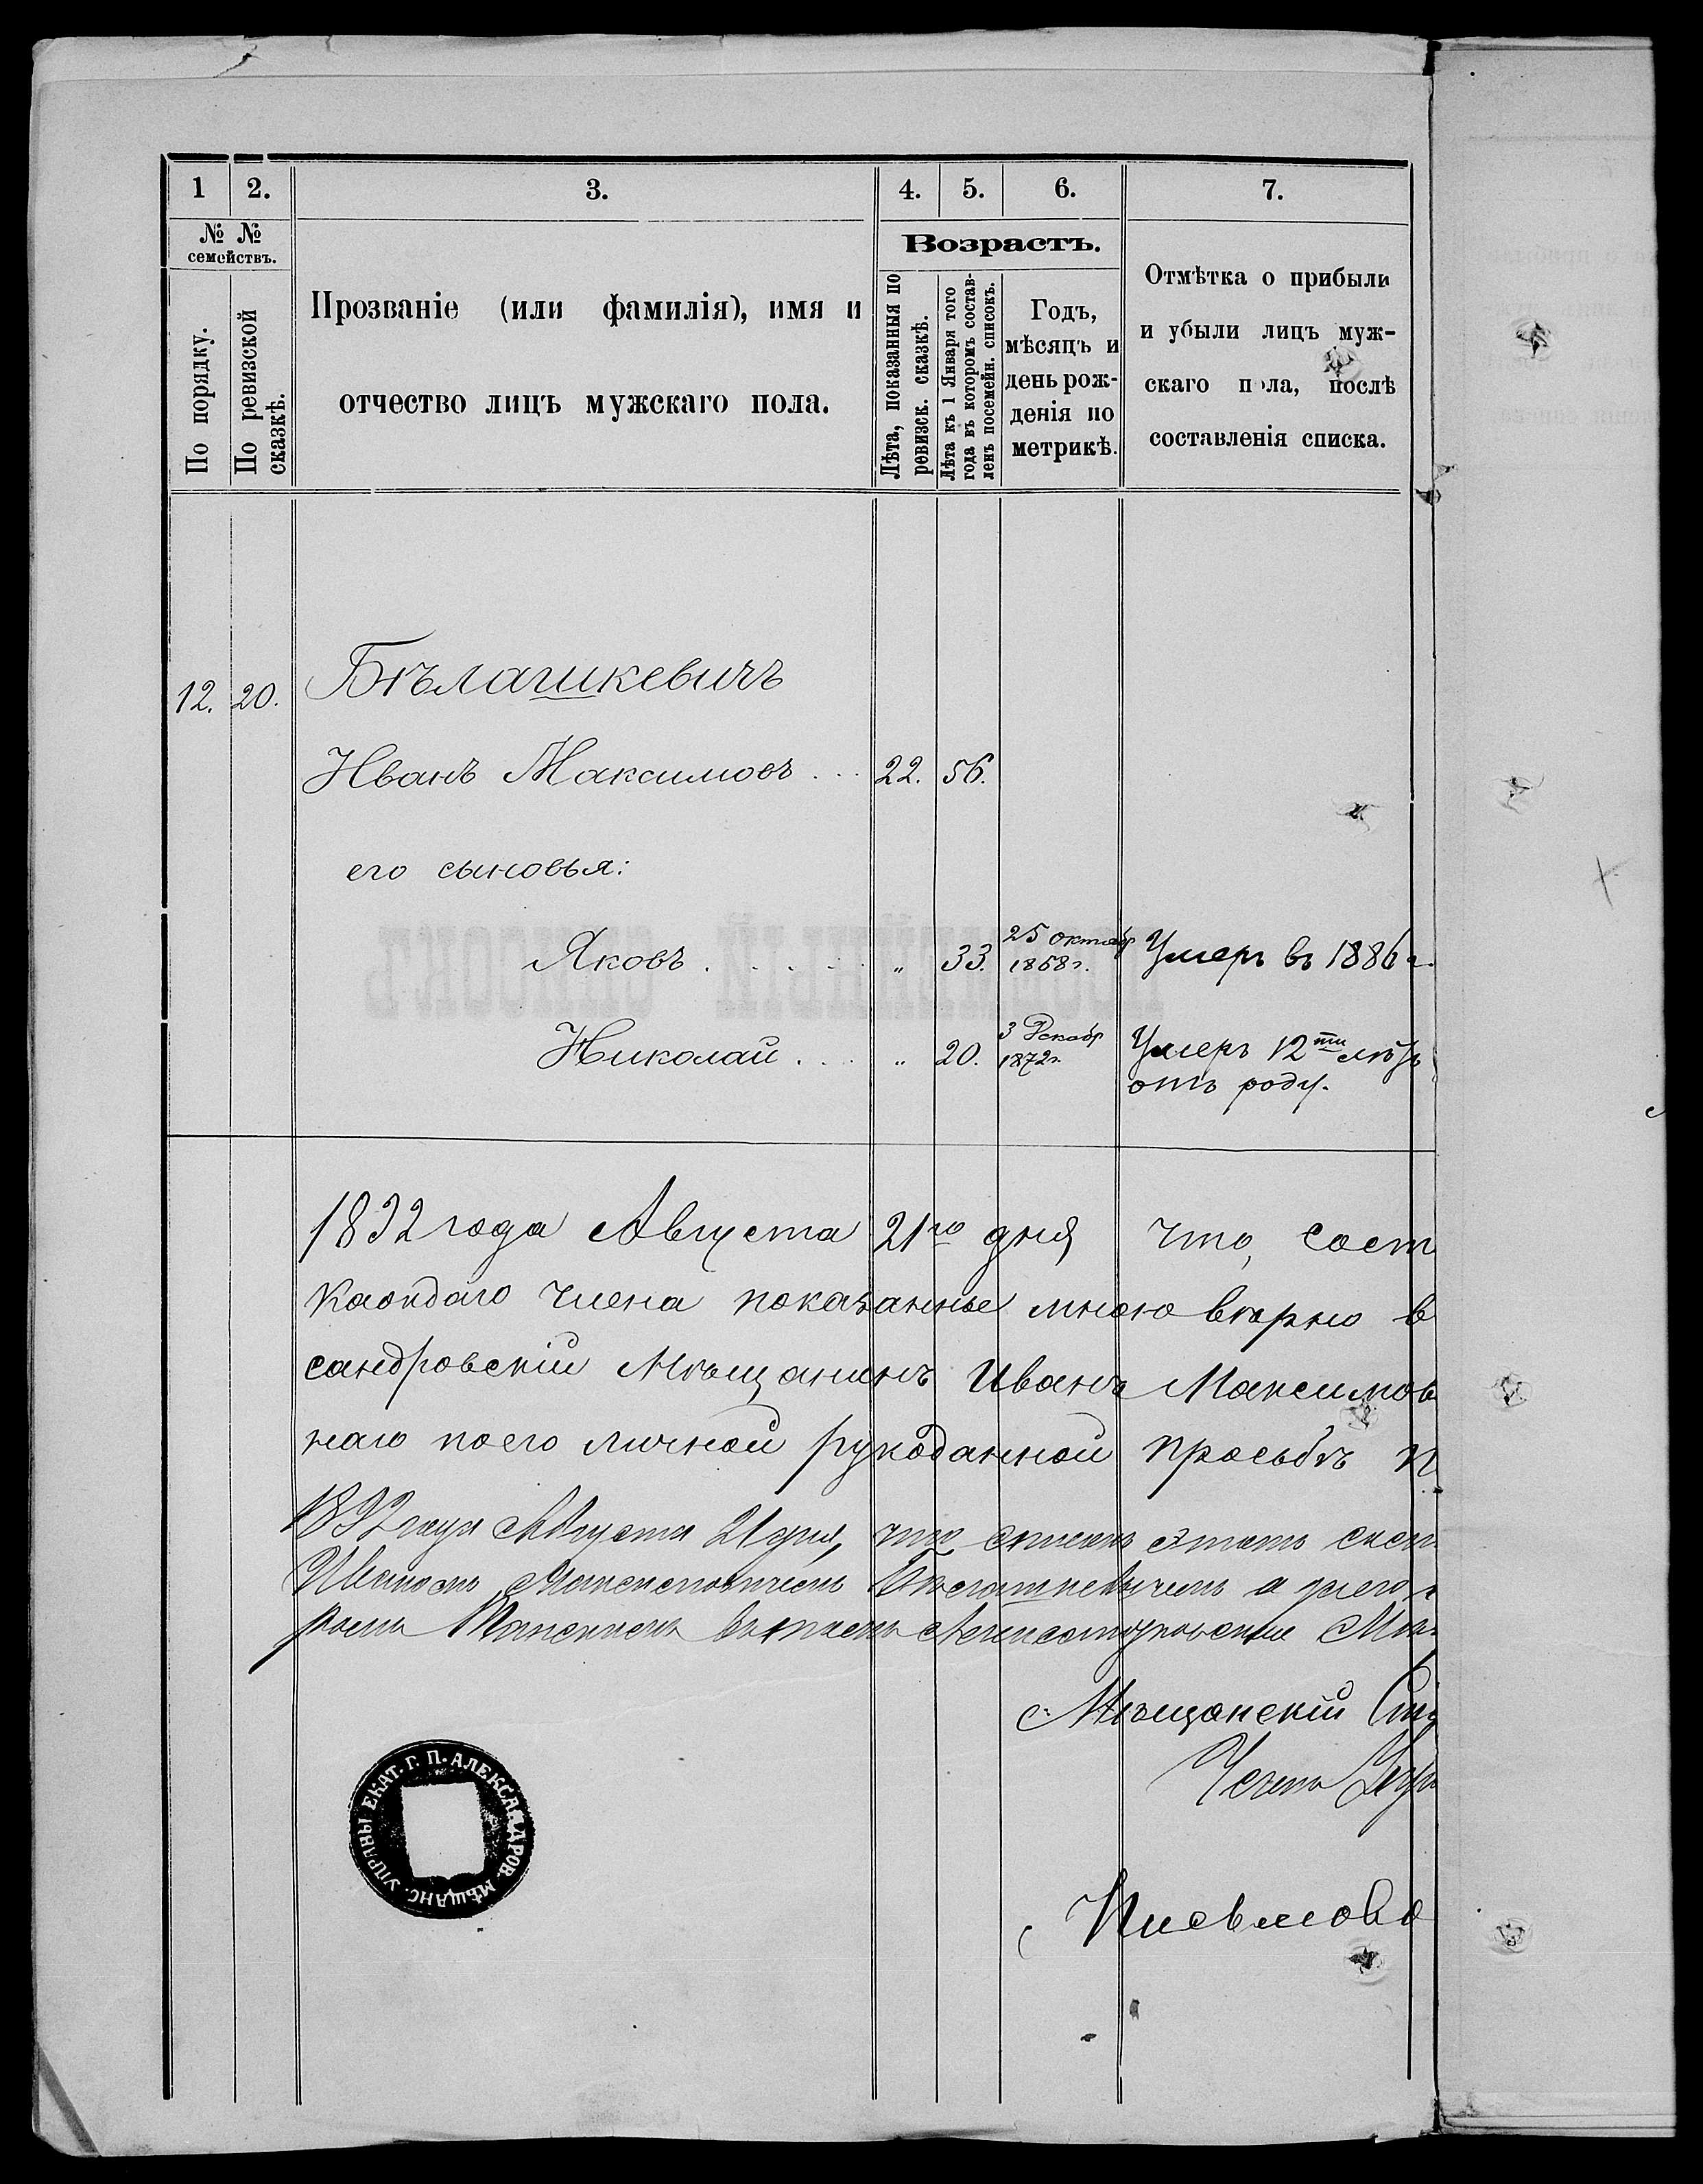 1 2. 3. 4. 5. 6. 7.
№ № семействъ.
По порядку.
По ревизской сказкѣ.
Прозваніе (или фамилія), имя и
отчество лицъ мужскаго пола.
Возрастъ.
Лѣта, показанныя по
ревизск. сказкѣ.
Лѣта къ 1 Января того
года въ которомъ состав-
ленъ посемейн. списокъ.
Годъ,
мѣсяцъ и
день рож-
денія по
метрикѣ.
Отмѣтка о прибыли
и убыли лицъ муж-
скаго пола, послѣ
составленія списка.
12. 20. Бѣлашкевичъ
Иванъ Максимовъ . . . 22. 56.
его сыновья:
Яковъ . . . . . „ 33. 25 октябр 1858 г. Умеръ въ 1886 г.
Николай . . . „ 20. 3 Декабр 1872 г. Умеръ 12ти лѣтъ
отъ роду.
1892 года Августа 21го дня что, сост
каждаго члена показанные мною вѣрно в
сандровскій Мѣщанинъ Иванъ Максимов
наго по его личной рукоданной просьбѣ п
1892 года Августа 21 дня, что списокъ этотъ
Иваномъ Максимовичемъ Бѣлашкевичемъ а
Мѣщанскій
Члены
Письмово
УПРАВЫ ЕКАТ. Г. П. АЛЕКСАНДРОВ. МѢЩАНС.